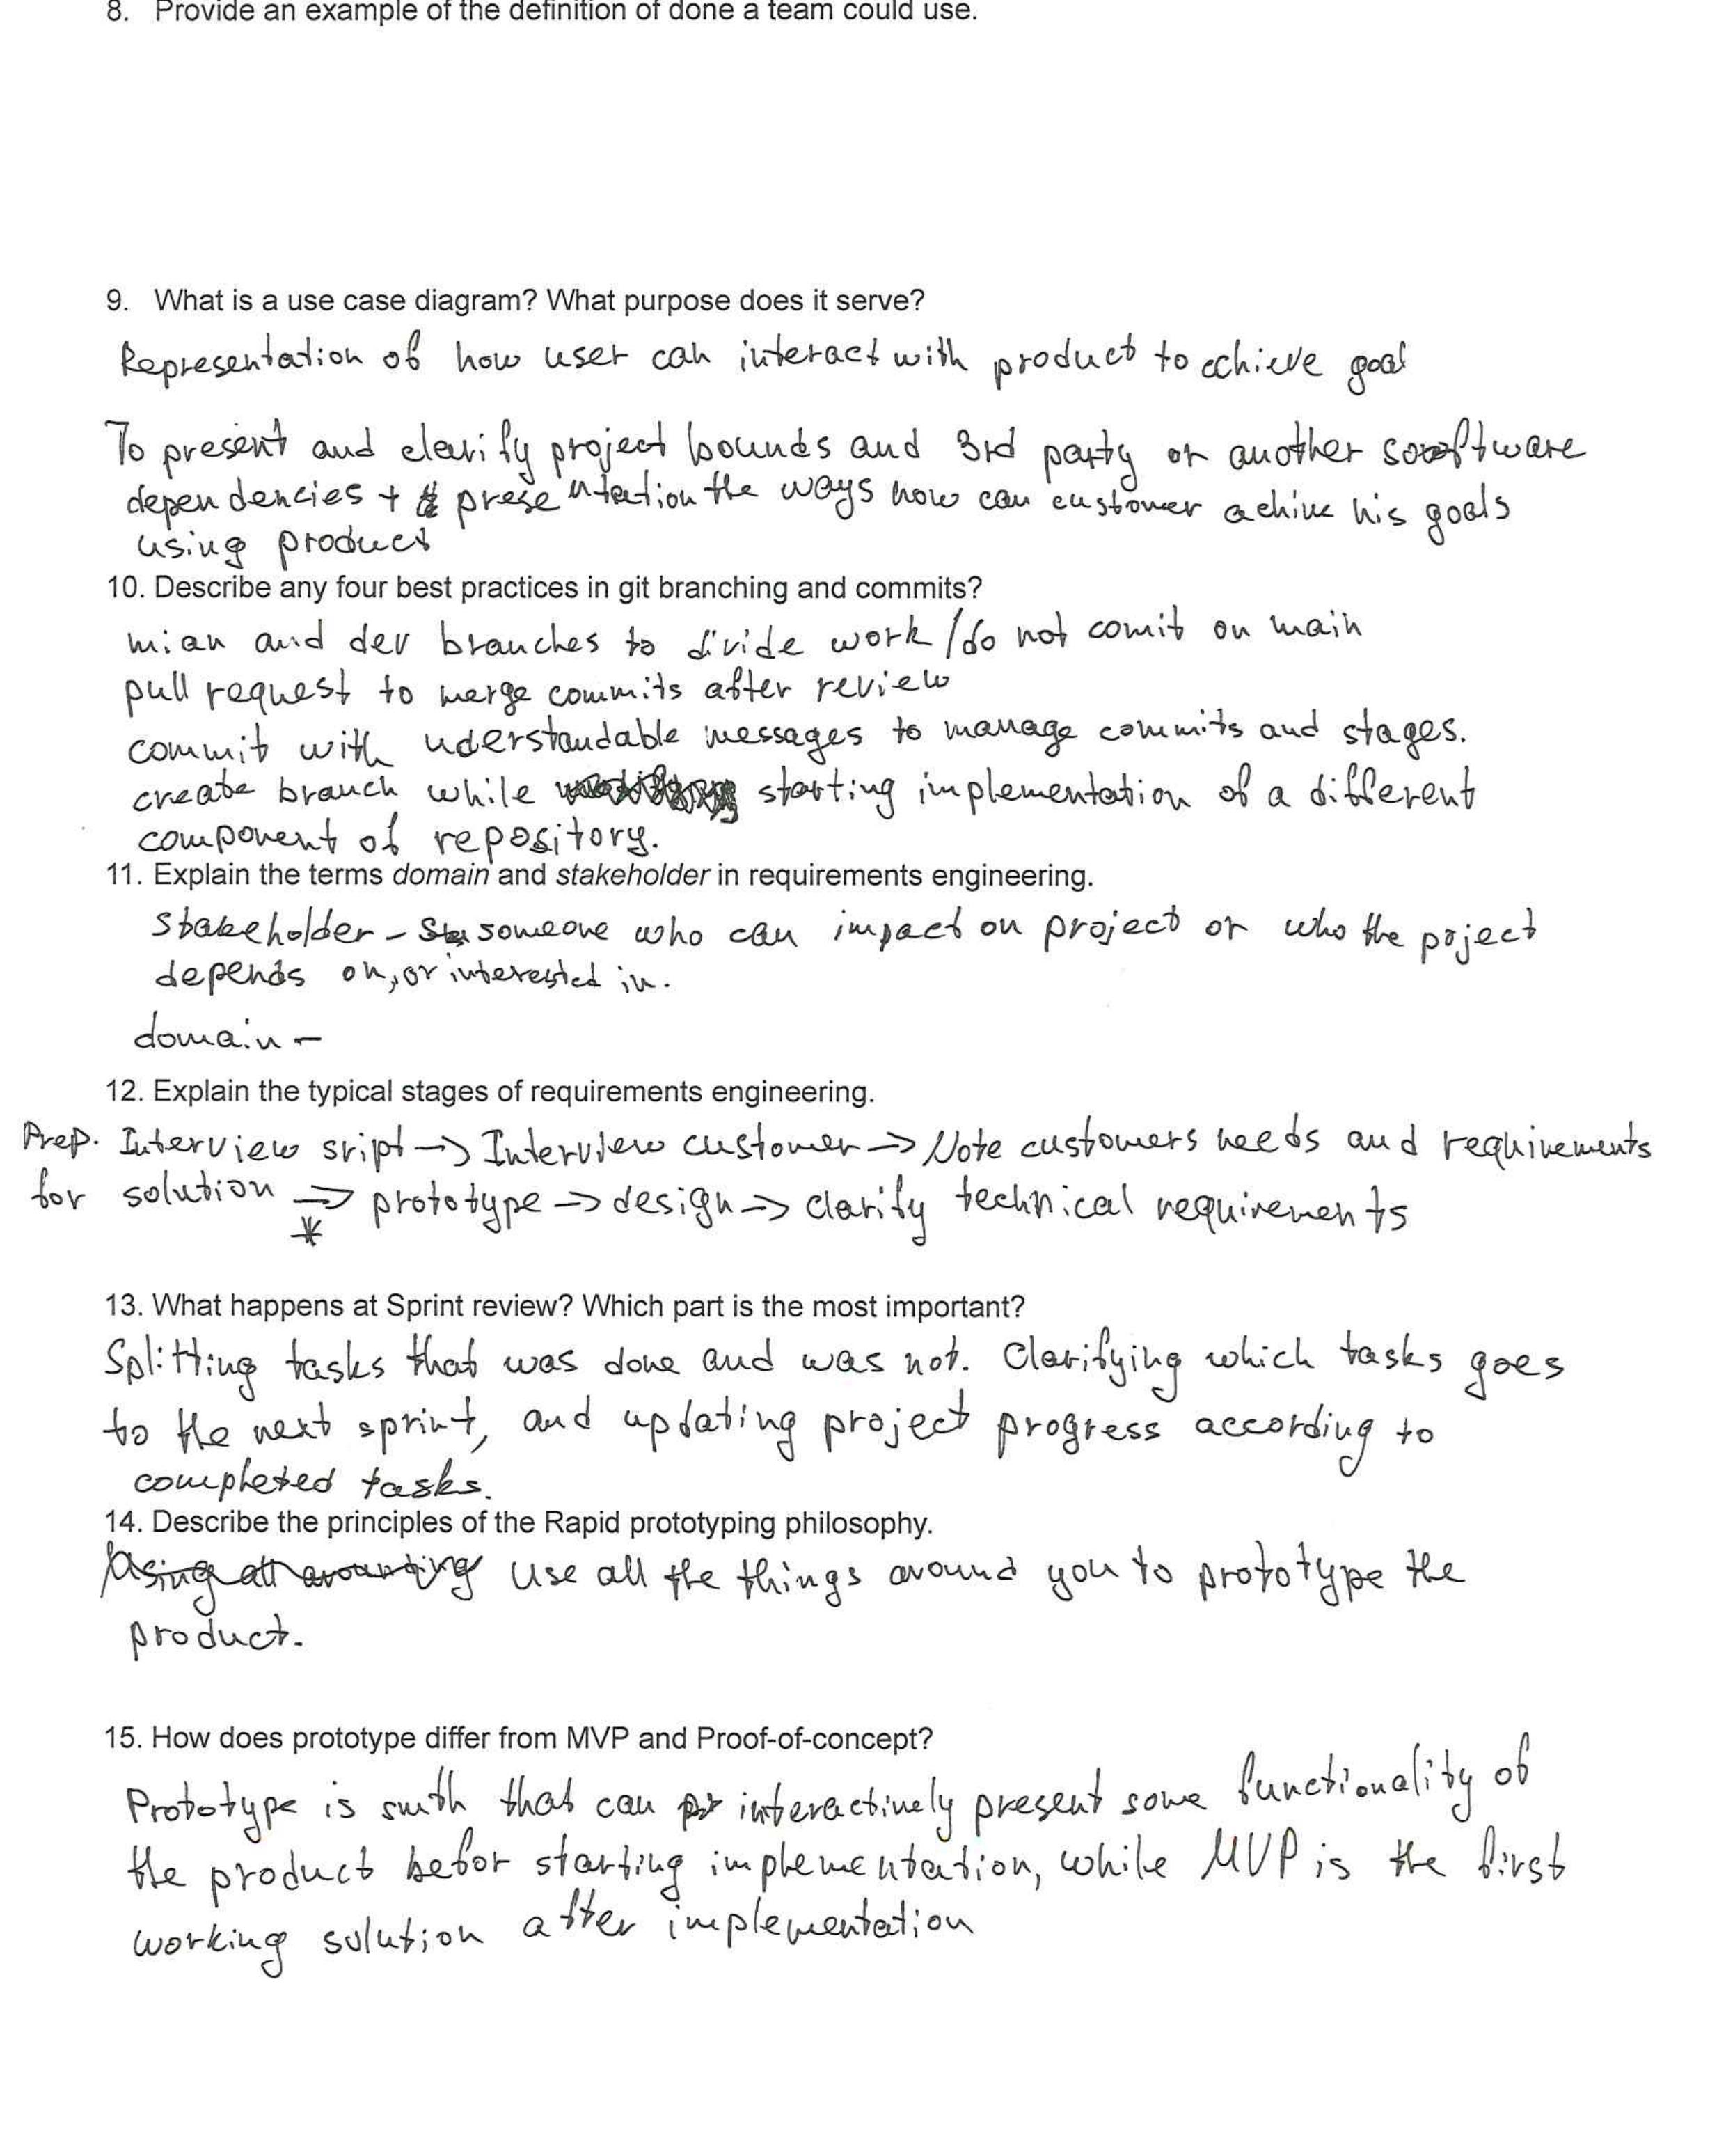 8. Provide an example of the definition of done a team could use.
9. What is a use case diagram? What purpose does it serve?
Representation of how user can interact with product to achieve goal
To present and clarify project bounds and 3rd party or another software
dependencies + presentation the ways how can customer achive his goals
using product
10. Describe any four best practices in git branching and commits?
mian and dev branches to divide work / do not comit on main
pull request to merge commits after review
commit with uderstandable messages to manage commits and stages.
create branch while starting implementation of a different
component of repository.
11. Explain the terms domain and stakeholder in requirements engineering.
Stakeholder - someone who can impact on project or who the poject
depends on, or interested in.
domain -
12. Explain the typical stages of requirements engineering.
Prep. Interview sript -> Interview customer -> Note customers needs and requirements
for solution => prototype -> design -> clarify technical requirements
*
13. What happens at Sprint review? Which part is the most important?
Splitting tasks that was done and was not. Clarifying which tasks goes
to the next sprint, and updating project progress according to
completed tasks.
14. Describe the principles of the Rapid prototyping philosophy.
Use all the things around you to prototype the
product.
15. How does prototype differ from MVP and Proof-of-concept?
Prototype is smth that can interactively present some functionality of
the product befor starting implementation, while MVP is the first
working solution after implementation